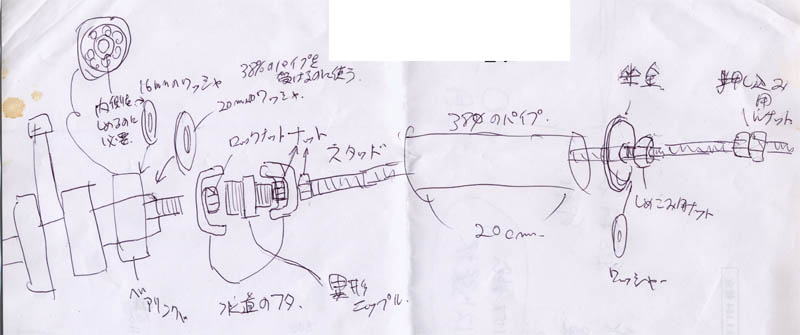 16mmワッシャ
38%のパイプを
受けるのに使う.
20mmのワッシャ.
内側を
しめるのに
必要.
ロックナット
ナット
スタッド
38φのパイプ.
座金
押し込み
用
ナット
しめこみ用ナット
20cm
ワッシャー
ベアリング
水道のフタ.
異形
ニップル.